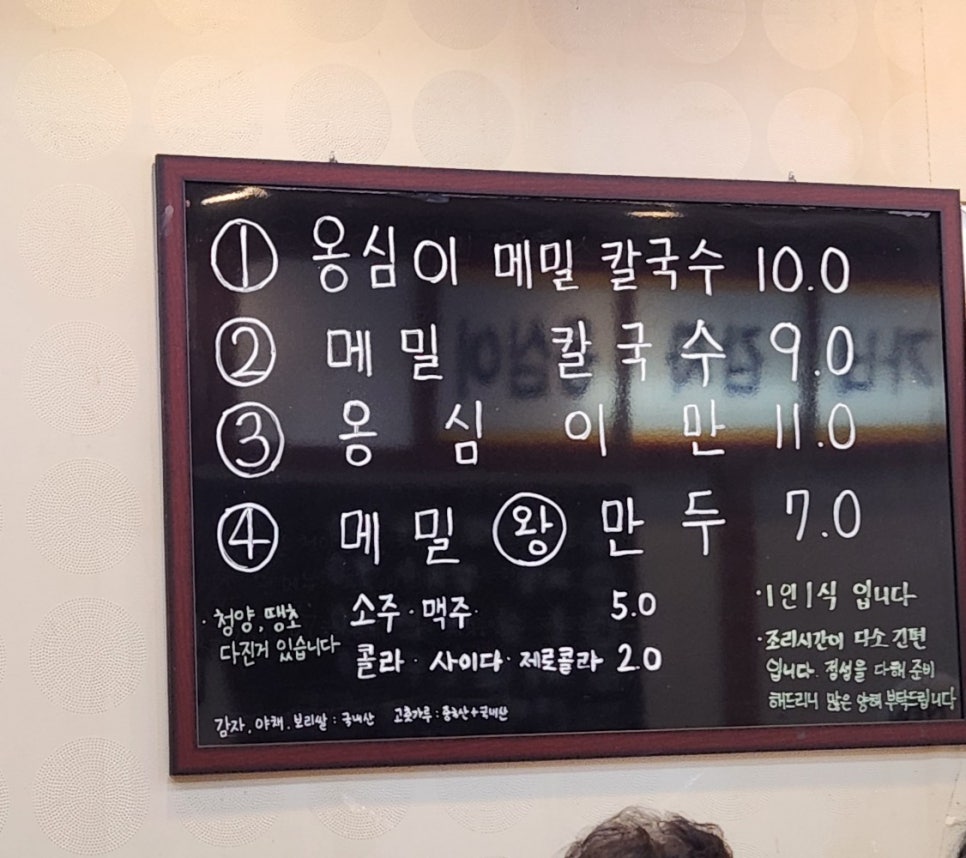 ① 옹심이 메밀 칼국수 10.0
② 메밀 칼국수 9.0
③ 옹심이만 11.0
④ 메밀 왕 만두 7.0
· 청양, 땡초
다진거 있습니다
소주 · 맥주 5.0
콜라 · 사이다 · 제로콜라 2.0
· 1인 1식 입니다
· 조리시간이 다소 긴편
입니다. 정성을 다해 준비
해드리니 많은 양해 부탁드립니다
감자, 야채, 보리쌀 : 국내산 고춧가루 : 중국산+국내산